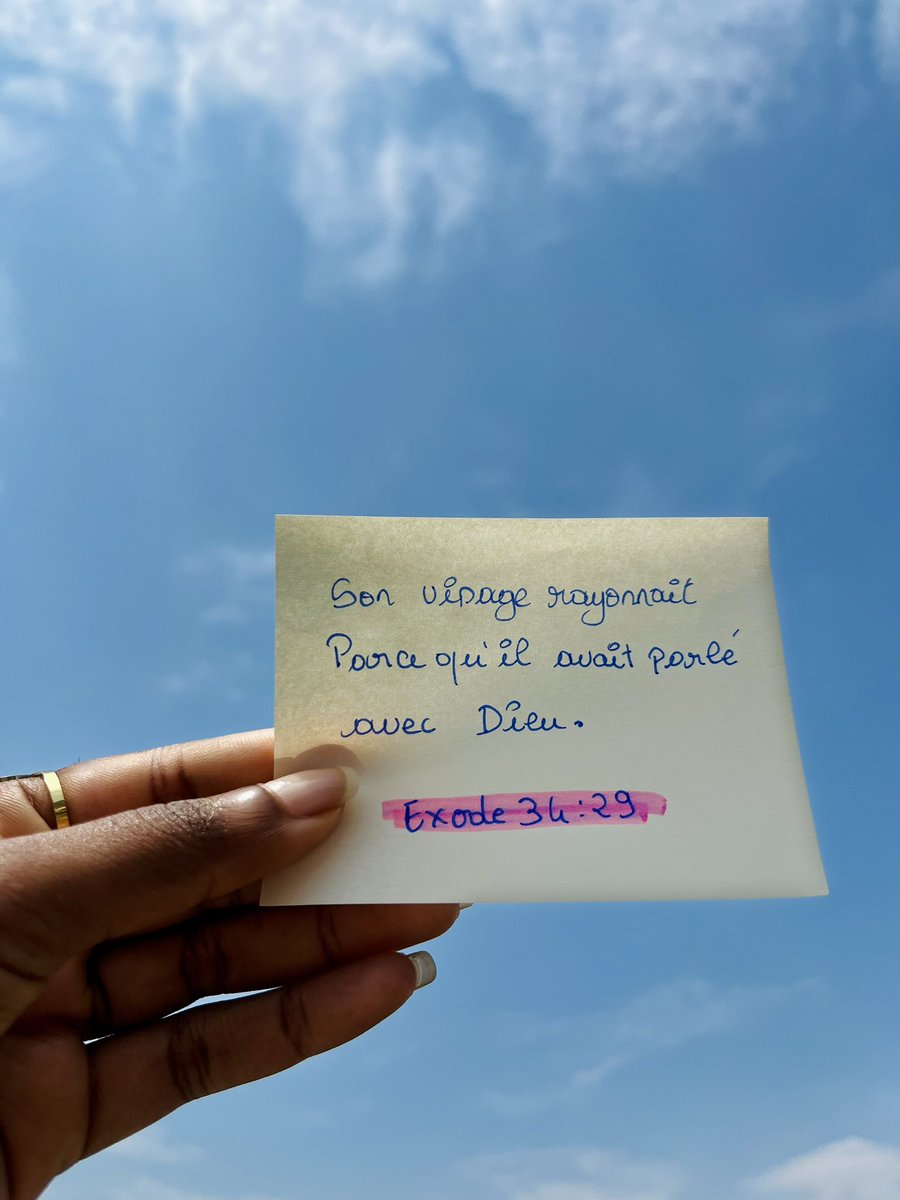 Son visage rayonnait
Parce qu'il avait parlé
avec Dieu.
Exode 34:29